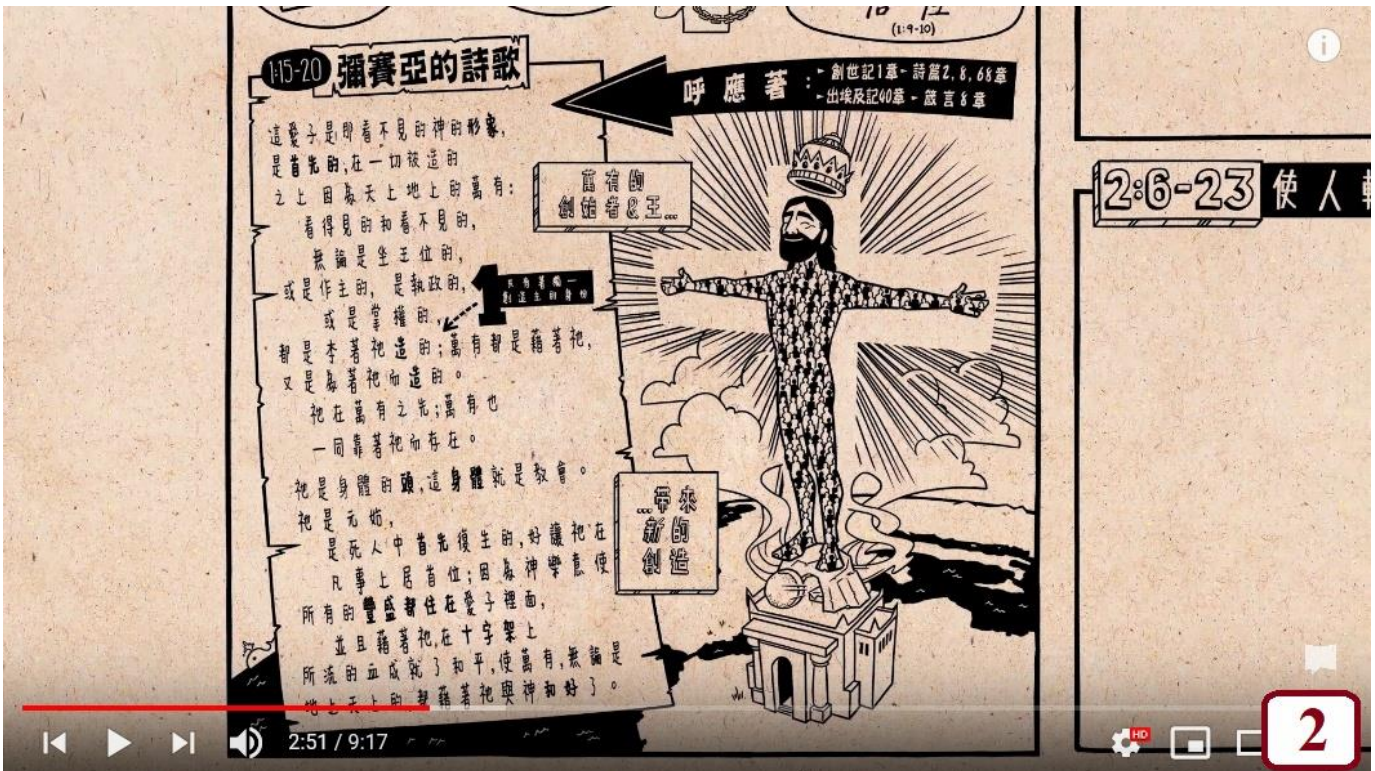 (1:9-10)
1:15-20 彌賽亞的詩歌
呼應著: - 創世記1章- 詩篇2,8,68章
- 出埃及記40章 - 箴言8章
這愛子是即看不見的神的形象,
是首先的,在一切被造的
之上因為天上地上的萬有:
看得見的和看不見的,
無論是坐王位的,
或是作主的, 是執政的,
或是掌權的,
都是本著祂造的;萬有都是藉著祂,
又是為著祂而造的。
祂在萬有之先;萬有也
一同靠著祂而存在。
祂是身體的頭,這身體就是教會。
祂是元始,
是死人中首先復生的,好讓祂在
凡事上居首位;因為神樂意使
所有的豐盛都住在愛子裡面,
並且藉著祂,在十字架上
所流的血成就了和平,使萬有,無論是
地上天上的,都藉著祂與神和好了。
1
只有著獨一
創造主的身份
萬有的
創始者&王...
...帶來
新的
創造
2:6-23 使人
2:51 / 9:17
HD
2